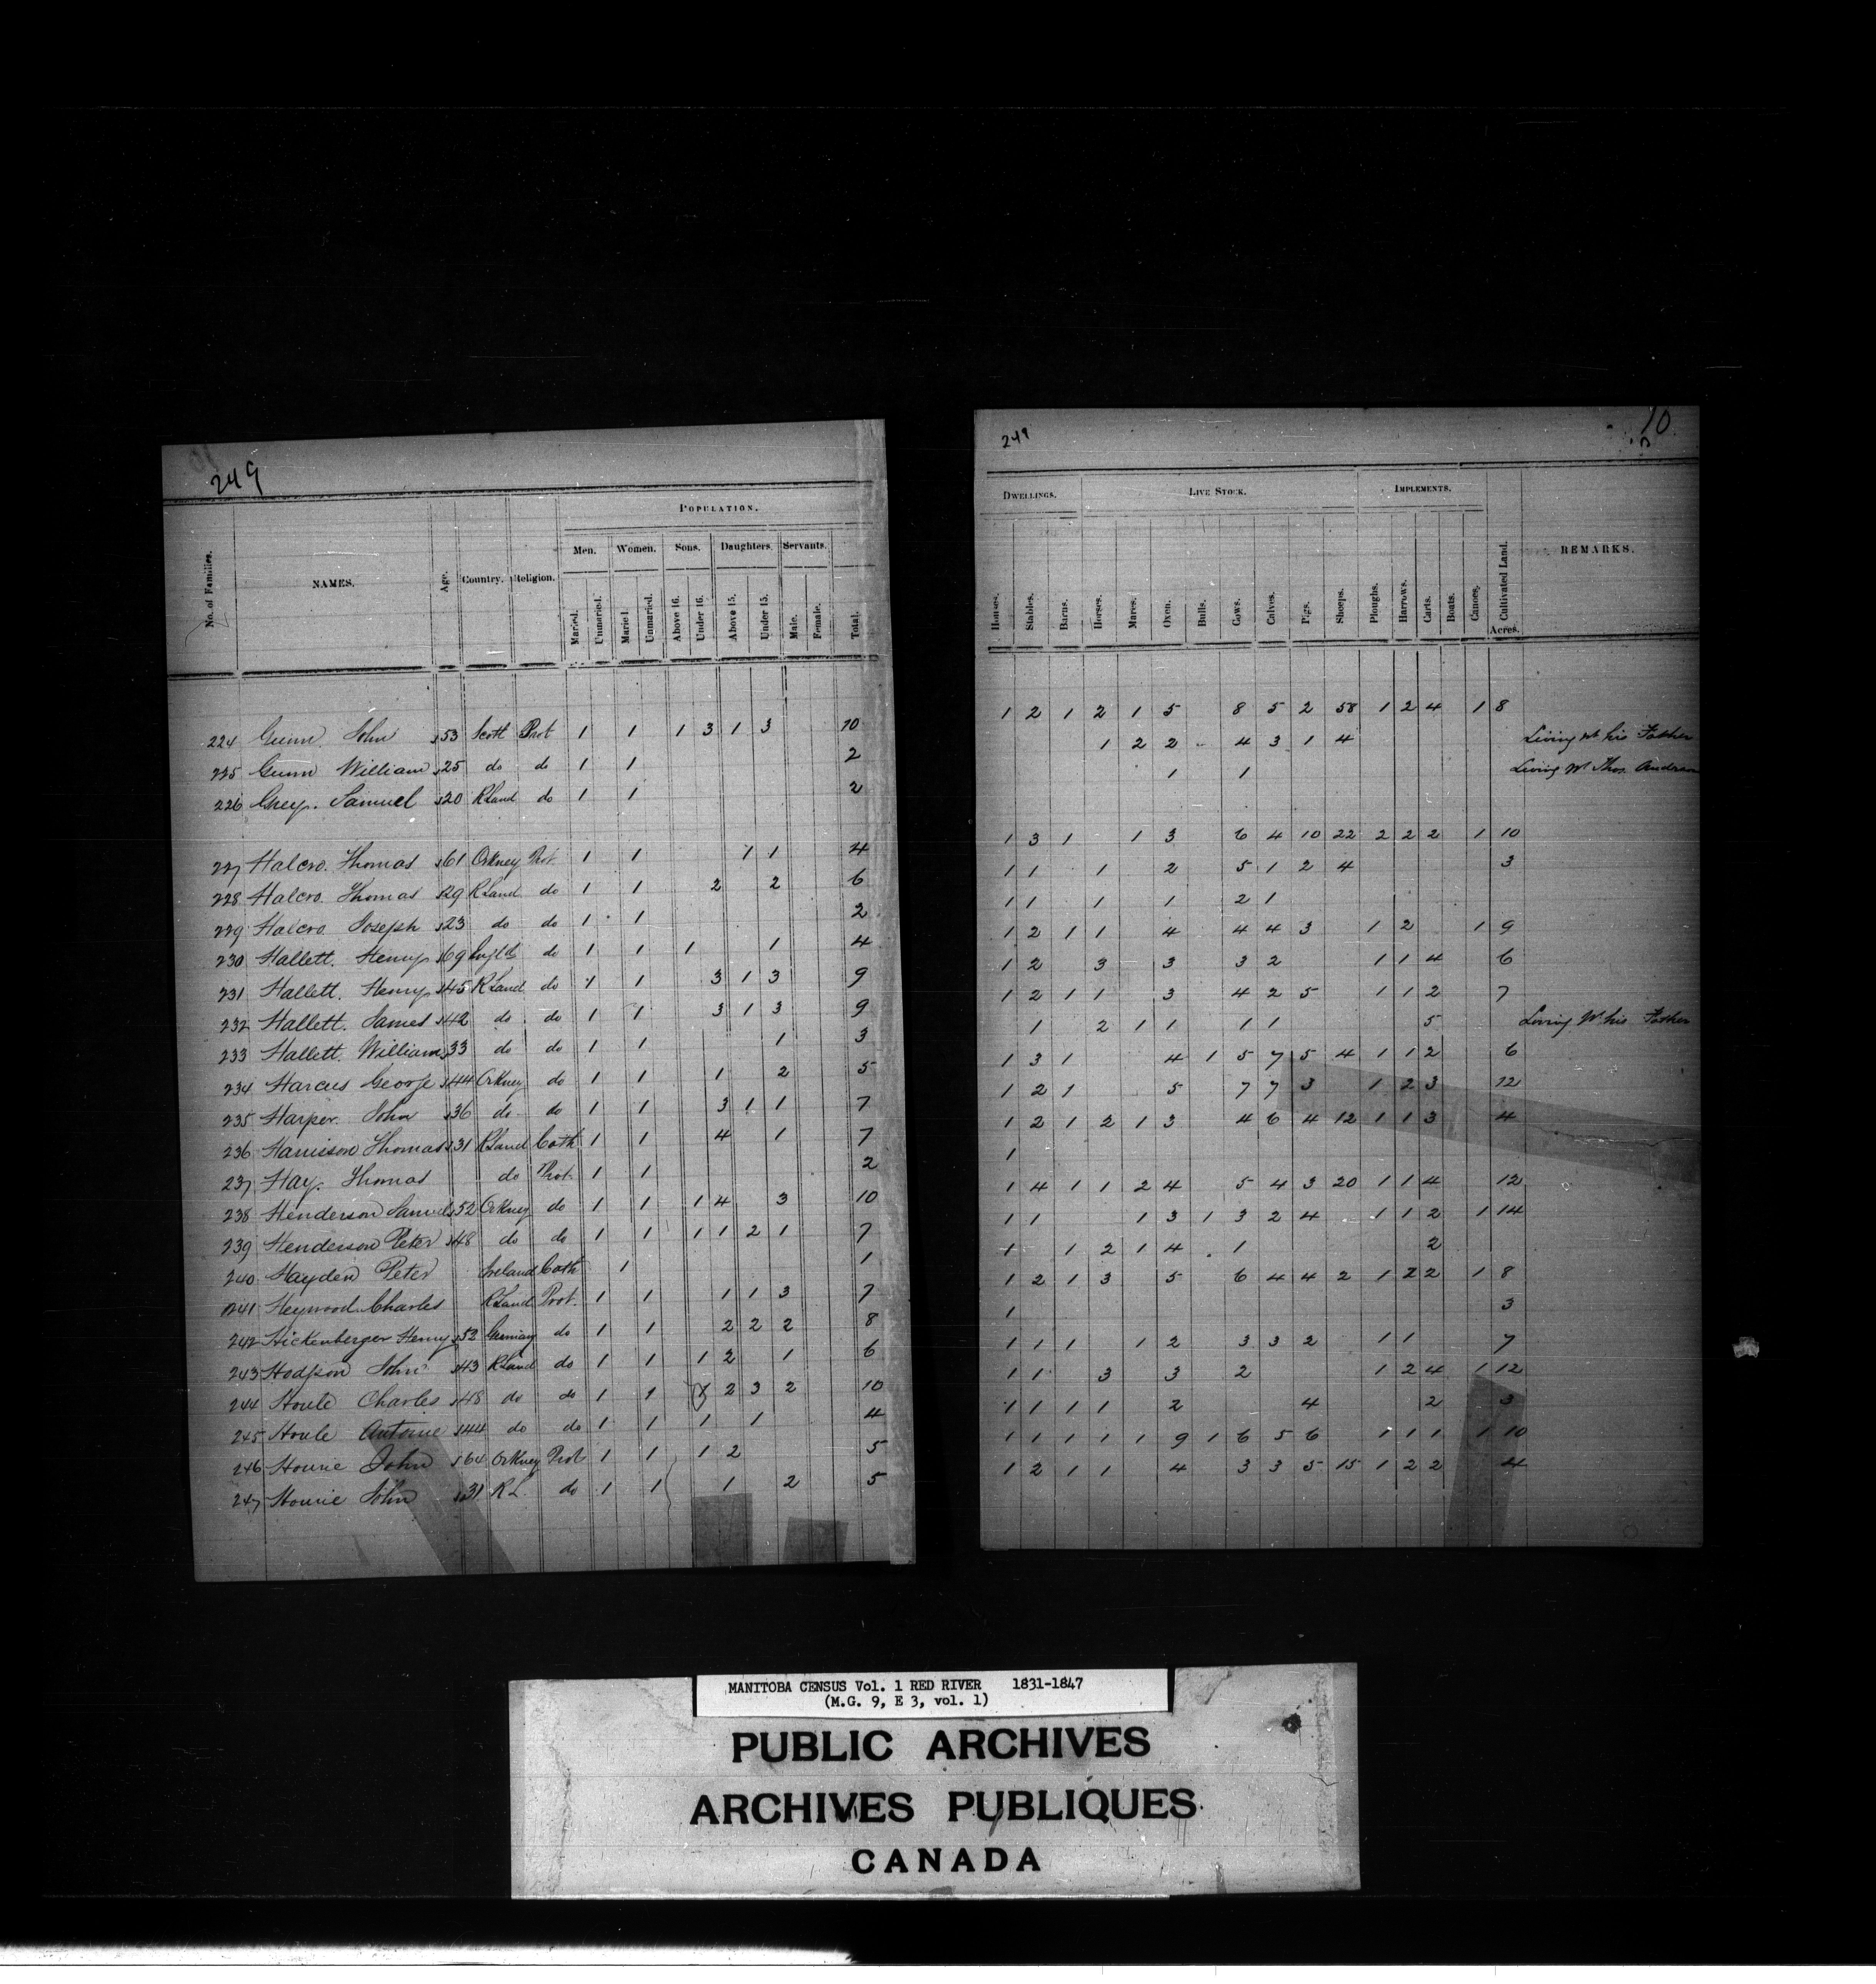 249
POPULATION.
Men. Women. Sons. Daughters. Servants.
No. of Families. NAMES. Age. Country. Religion. Maried. Unmaried. Maried. Unmaried. Above 16. Under 16. Above 15. Under 15. Male. Female. Total.
224 Gunn John 53 Scott Prot 1 1 1 3 1 3 10
225 Gunn William 25 do do 1 1 2
226 Grey. Samuel 20 RLand do 1 1 2
227 Halcro. Thomas 61 Orkney Prot. 1 1 1 1 4
228 Halcro. Thomas 29 RLand do 1 1 2 2 6
229 Halcro Joseph 23 do do 1 1 2
230 Hallett. Henry 69 do 1 1 1 1 4
231 Hallett. Henry 45 RLand do 1 1 3 1 3 9
232 Hallett. James 42 do do 1 1 3 1 3 9
233 Hallett. William 33 do do 1 1 1 3
234 Harcus George 44 Orkney do 1 1 1 2 5
235 Harper. John 36 do do 1 1 3 1 1 7
236 Harrison Thomas 31 RLand Cath 1 1 4 1 7
237 Hay. Thomas do Prot. 1 1 2
238 Henderson Samuel 52 Orkney do 1 1 1 4 3 10
239 Henderson Peter 48 do do 1 1 1 1 2 1 7
240 Hayden Peter Ireland Cath 1 1
241 Heywood Charles RLand Prot. 1 1 1 1 3 7
242 Hickenberger Henry 52 Germany do 1 1 2 2 2 8
243 Hodgson John 43 RLand do 1 1 1 2 1 6
244 Houle Charles 48 do do 1 1 2 3 2 10
245 Houle Antoine 44 do do 1 1 1 1 4
246 Hourie John 64 Orkney Prot 1 1 1 2 5
247 Hourie John 31 RL. do 1 1 1 2 5
249 10
DWELLINGS. LIVE STOCK. IMPLEMENTS.
Houses. Stables. Barns. Horses. Mares. Oxen. Bulls. Cows. Calves. Pigs. Sheeps. Ploughs. Harrows. Carts. Boats. Canoes. Cultivated Land. Acres. REMARKS.
1 2 1 2 1 5 8 5 2 58 1 2 4 1 8
1 2 2 4 3 1 4 Living wt his Father
1 1 Living wt Thos. Anderson
1 3 1 1 3 6 4 10 22 2 2 2 1 10
1 1 1 2 5 1 2 4 3
1 1 1 1 2 1
1 2 1 1 4 4 4 3 1 2 1 9
1 2 3 3 3 2 1 1 4 6
1 2 1 1 3 4 2 5 1 1 2 7
1 2 1 1 1 1 5 Living wt his Father
1 3 1 4 1 5 7 5 4 1 1 2 6
1 2 1 5 7 7 3 1 2 3 12
1 2 1 2 1 3 4 6 4 12 1 1 3 4
1
1 4 1 1 2 4 5 4 3 20 1 1 4 12
1 1 1 3 1 3 2 4 1 1 2 1 14
1 1 2 1 4 1 2
1 2 1 3 5 6 4 4 2 1 2 2 1 8
1 3
1 1 1 1 2 3 3 2 1 1 7
1 1 3 3 2 1 2 4 1 12
1 1 1 1 2 4 2 3
1 1 1 1 1 9 1 6 5 6 1 1 1 1 10
1 2 1 1 4 3 3 5 15 1 2 2 4
MANITOBA CENSUS Vol. 1 RED RIVER 1831-1847
(M.G. 9, E 3, vol. 1)
PUBLIC ARCHIVES
ARCHIVES PUBLIQUES
CANADA